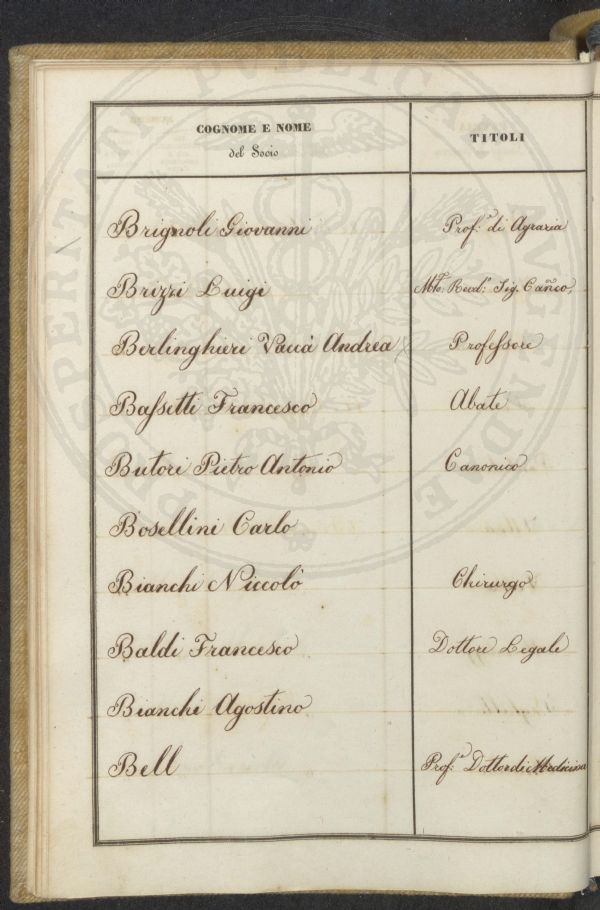 PROSPERITATI PVBLICAE AVGENDAE
COGNOME E NOME
del Socio
TITOLI
Brignoli Giovanni Prof.e di Agraria
Brizzi Luigi Mto. Revd.o Sig. Canco.
Berlinghieri Vaccà Andrea Professore
Bassetti Francesco Abate
Butori Pietro Antonio Canonico
Bosellini Carlo
Bianchi Niccolò Chirurgo
Baldi Francesco Dottore Legale
Bianchi Agostino
Bell Prof.e Dottor di Medicina